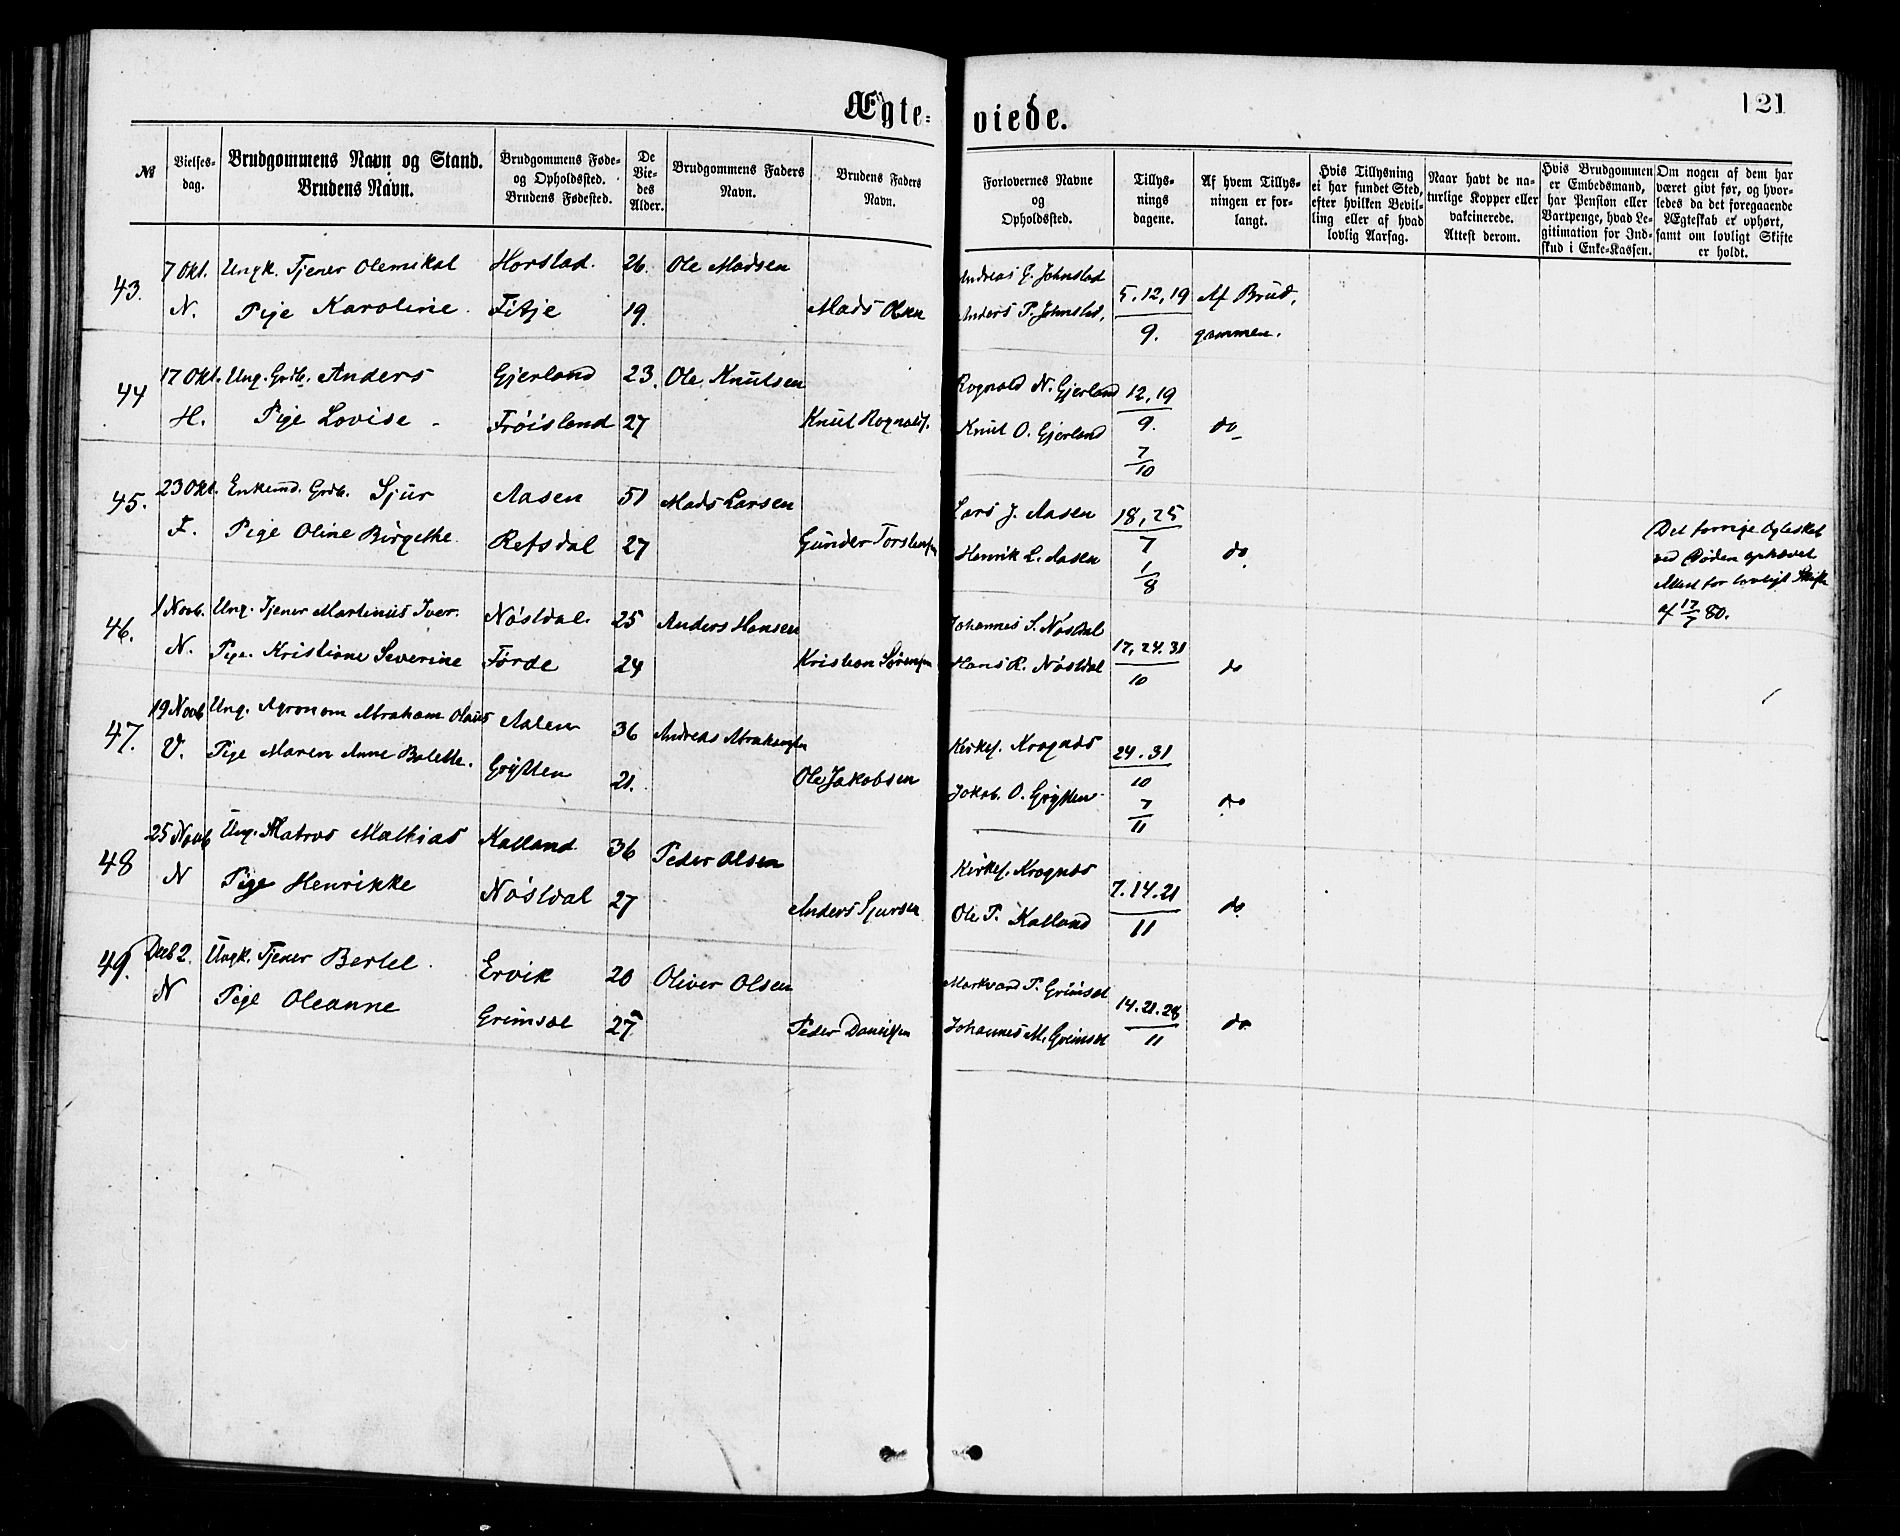 Ægte-
viede.
121
№
Vielses-
dag.
Brudgommens Navn og Stand.
Brudens Navn.
Brudgommens Føde-
og Opholdssted.
Brudens Fødested.
De
Vie-
des
Alder.
Brudgommens Faders
Navn.
Brudens Faders
Navn.
Forlovernes Navne
og
Opholdssted.
Tillys-
nings
dagene.
Af hvem Tillys-
ningen er for-
langt.
Hvis Tillysning
ei har fundet Sted,
efter hvilken Bevil-
ling eller af hvad
lovlig Aarsag.
Naar havt de na-
turlige Kopper eller
vakcinerede.
Attest derom.
Hvis Brudgommen
er Embedsmand,
har Pension eller
Vartpenge, hvad Le-
gitimation for Ind-
skud i Enke-Kassen.
Om nogen af dem har
været givt før, og hvor-
ledes da det foregaaende
Ægteskab er ophørt,
samt om lovligt Skifte
er holdt.
43. 7 Okt. Ungk. Tjener Olemikal Horstad. 26. Ole Madsen Andreas G. Johnstad
N. Pige Karoline. Fitje 19. Mads Olsen Anders P. Johnstad, 5.12,19 Af Brud,
9. gommen.
44 17 Okt. Ung. Grdb. Anders Gjerland 23. Ole Knutsen Rognald N. Gjerland 12,19
H. Pige Lovise Fröisland 27 Knut Rognalds. Knut O. Gjerland 9. do
7
10
45. 23 Okt. Enkemd. Grdb. Sjur Aasen 51 Mads Larsen Lars J. Aasen 18,25
F. Pige Oline Birgethe Refsdal 27 Gunder Torstensen Henrik L. Aasen 7 do
1
8
Det forrige Egteskab
ved Døden ophævet
Attest for lovligt Skifte
af 17/7 80.
46. 1 Novb. Ung. Tjener Martinus Iver. Nøstdal 25 Anders Hansen Johannes S. Nøstdal
N. Pige. Kristiane Severine Førde 24 Kristian Sørensen Hans R. Nøstdal 17,24.31 do
10
47. 19 Novb Ung. Agronom Abraham Olaus Aalen 36 Andreas Abrahamsen Kirkes. Krognæs 24.31
V. Pige Maren Anne Bolette. Grytten 21. Ole Jakobsen Jakob. O. Grytten 10 do
7
11
48 25 Novb Ung. Matros Mathias Kalland 36 Peder Olsen Kirkes. Krognæs
N Pige Henrikke Nøstdal 27 Anders Sjursen Ole P. Kalland 7.14.21 do
11
49. Decb 2. Ungk. Tjener Bertel. Ervik 20 Oliver Olsen Markvard P. Grimsæt
N Pige Oleanne Grimsæt 27 Peder Danielsen Johannes M. Grimsæt 14.21.28 do
11